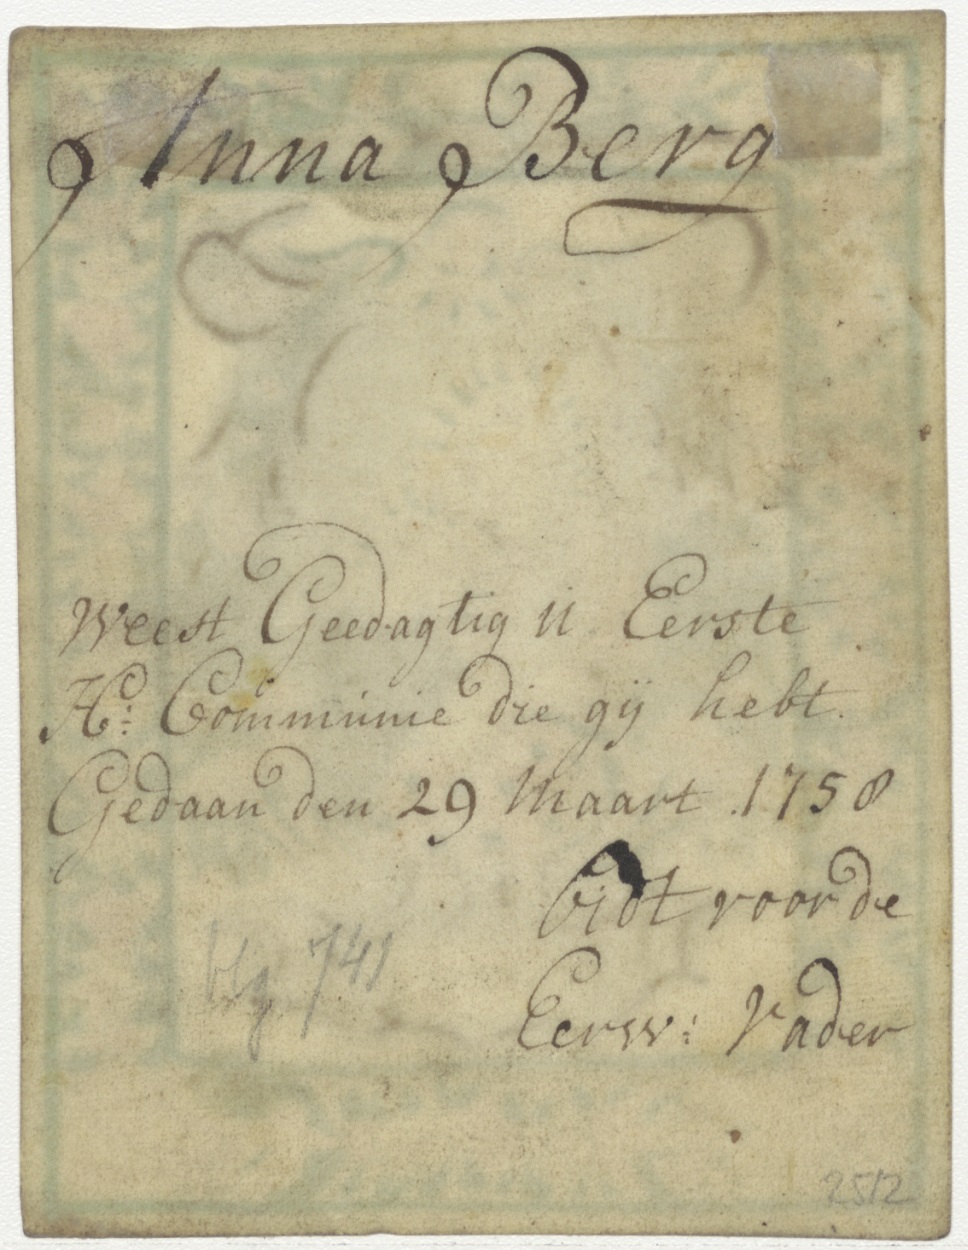 Anna Berg
Weest Geedagtig u Eerste
H: Communie die gÿ hebt.
Gedaan den 29 Maart 1758
bidt voor de
Eerw: Vader
blz. 741
2512